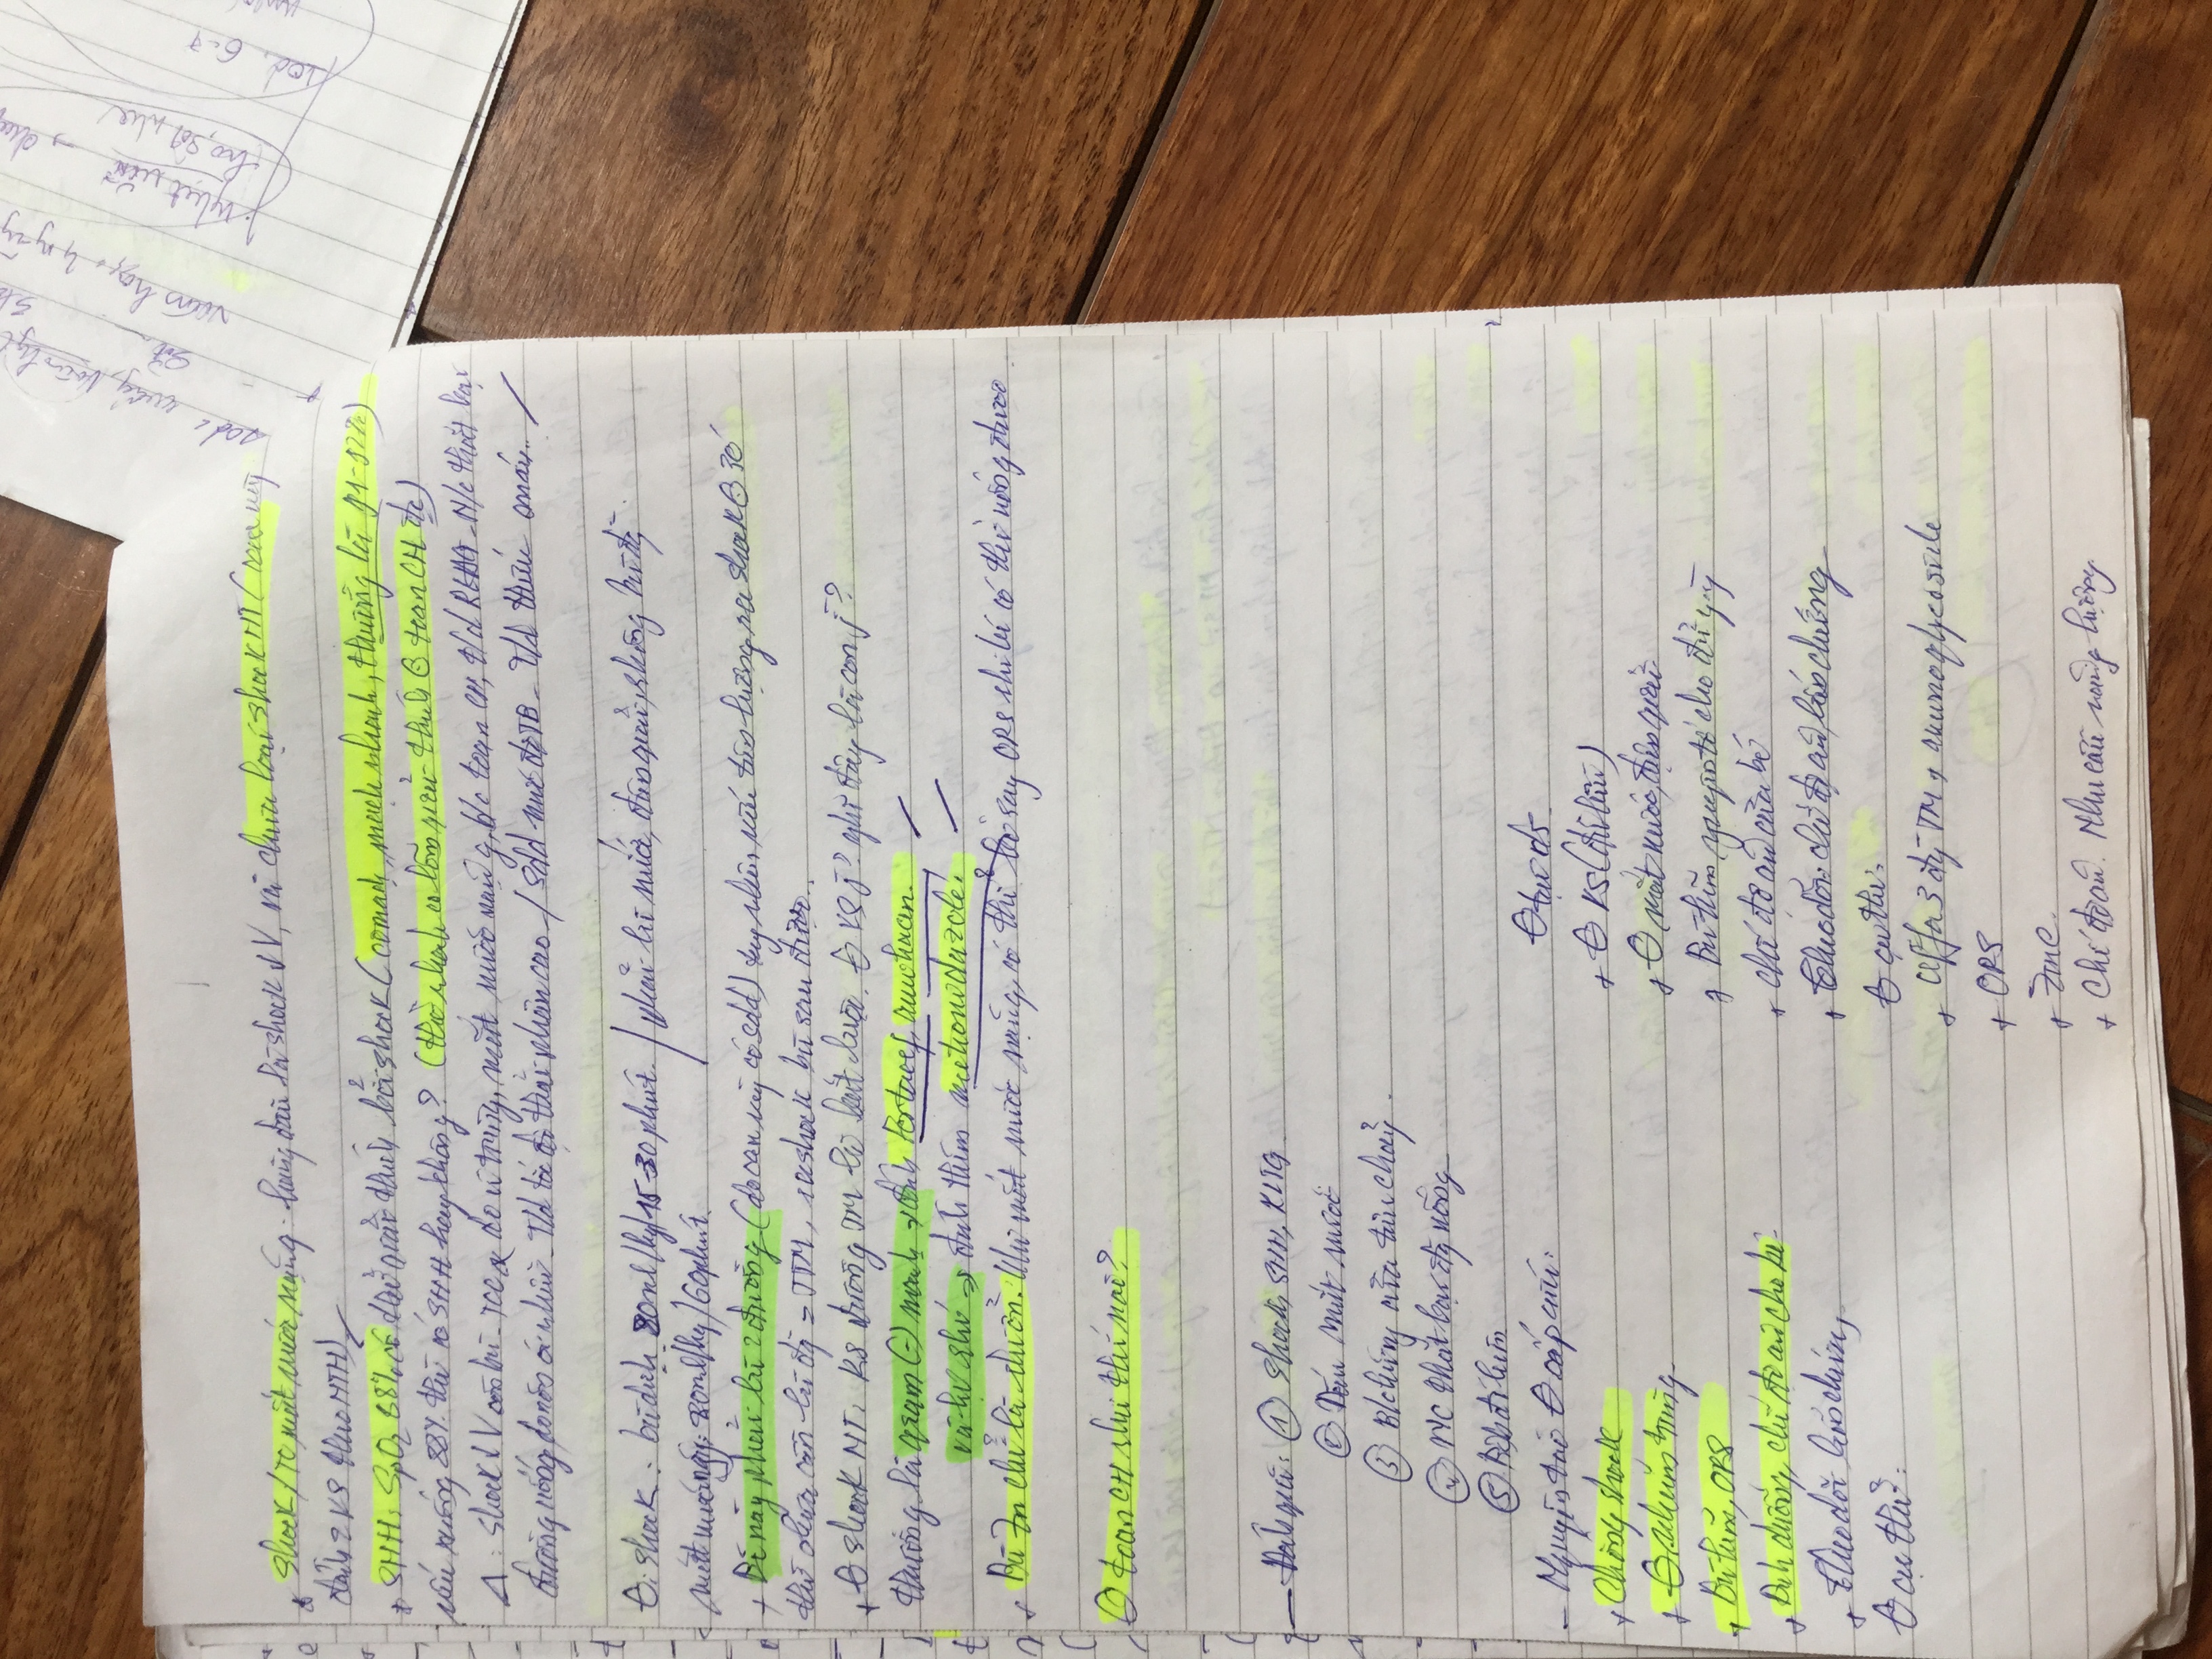 + Shock/TC mất nước nặng: hàng đầu là shock ↓V, và chưa loại shock NT (case này
đánh = KS theo NTH)
+ SHH: SpO2 88% có thể giải thích bởi shock (co mạch, mạch nhanh, thường là 91-92%)
nếu xuống 88% thì có SHH hay không? (thở nhanh co lõm giải thích toan CH đc)
Δ: shock ↓V còn bù - TCC do vi trùng, mất nước nặng, b/c toan CH, t/d RLĐG - N/c thất bại
đường uống do nôn ói nhiều - T/d tốc độ thải phân cao / Sdd mức độ TB - T/d thiếu máu.
Θ: shock: bù dịch 20ml/kg/15-30 phút. / phải bù nước, điện giải, không bù đg
mất nước ng: 20ml/kg/60phút.
+ Bé này phải bù đường (do can này có sdd) tuy nhiên nếu tiên lượng ra shock
thì chưa cần bù đg = TTM, ra shock bù sau được.
+ Θ shock NT: KS đường TM là bắt buộc. Θ KS j? nghĩ đây là con j?
thường là gram (-) mạnh → đánh Fortacef, amikacin.
và kỵ khí → đánh thêm metronidazole.
+ Bù Zn chỉ là thường. Khi mất nước nặng, có thể bỏ ORS khi bé có thể uống được
Θ toan CH như thế nào?
- Đánh giá: ① Shock, SHH, RLTG
② Dấu mất nước
③ B/chứng của tiêu chảy.
④ NC thất bại đg uống
⑤ Bệnh đi kèm
- Nguyên tắc Θ cấp cứu:
+ Chống shock
+ Θ nhiễm trùng
+ Bù kẽm, ORS
+ Dinh dưỡng, chế độ ăn cho bé
+ Theo dõi biến chứng
Θ cụ thể:
Θ tại
+ Θ KS (đủ liều)
+ Θ mất nước, điện giải
+ Bù kẽm nguyên tố cho đủ
+ chế độ ăn của bé
+ Theo dõi: chế độ ăn, biến chứng
Θ cụ thể:
+ Cefa 3 đg TM + aminoglycoside
+ ORS
+ Zinc.
+ Chế độ ăn. Nhu cầu năng lượng.